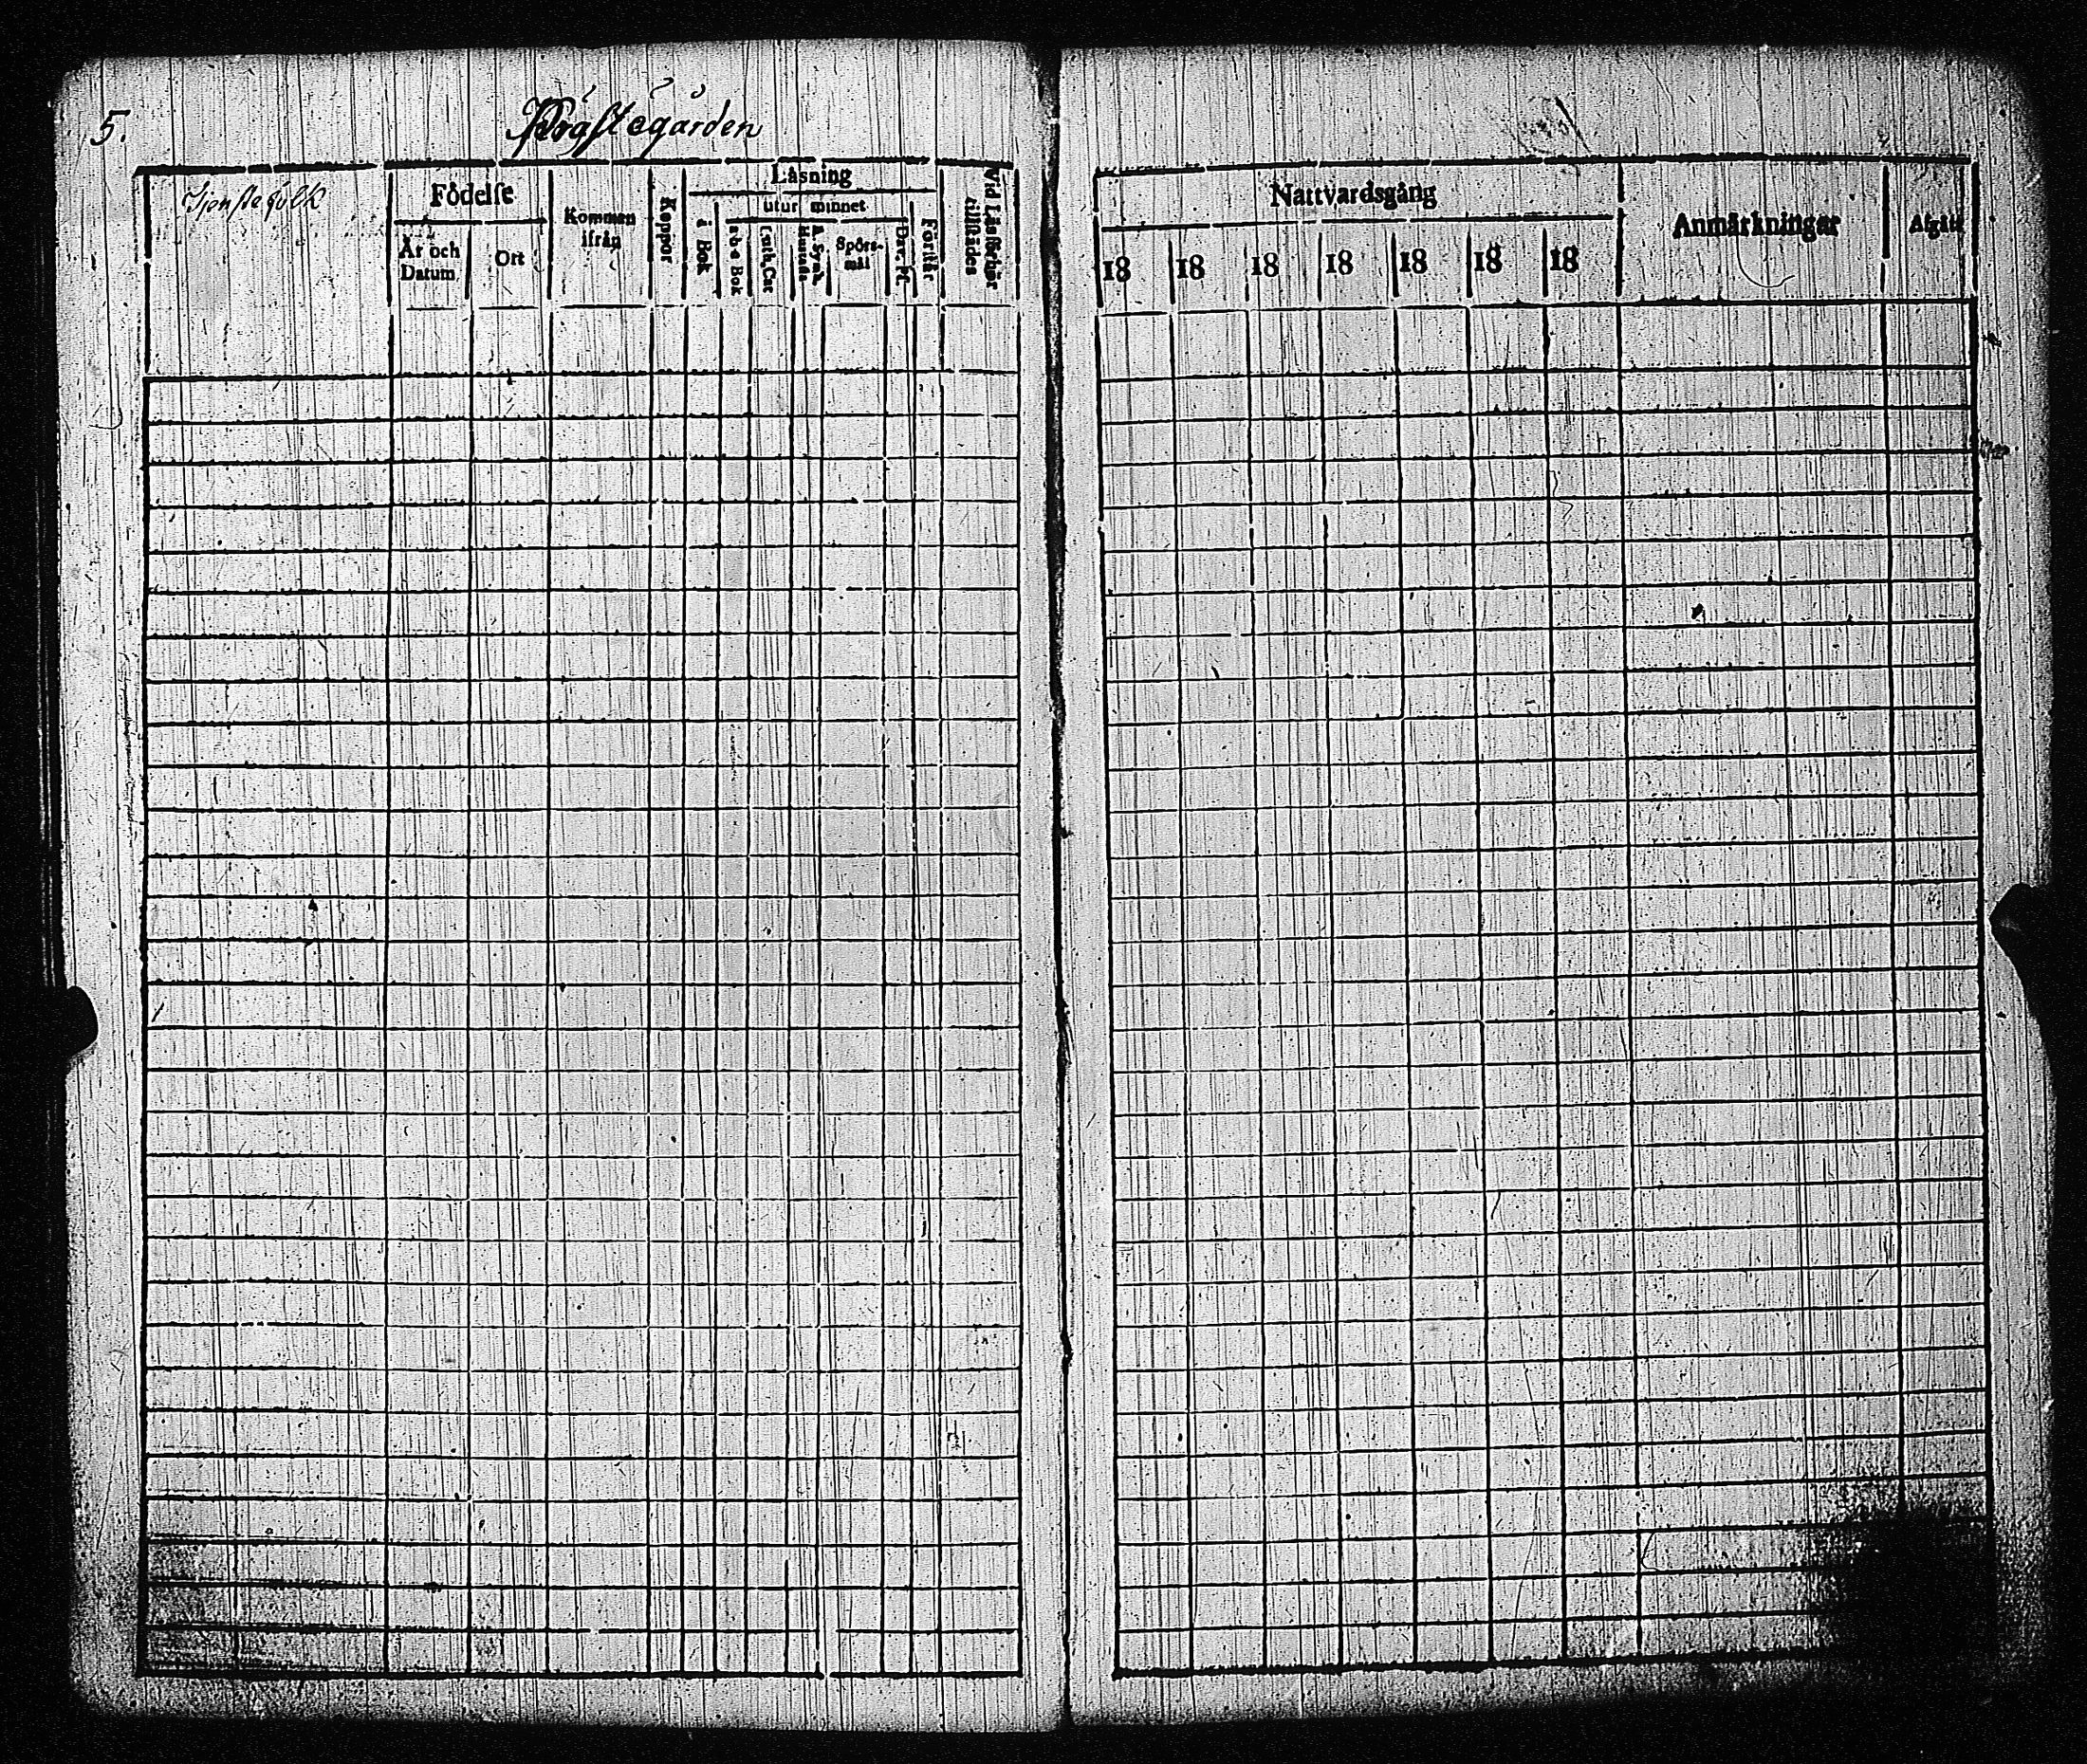 5.
Præstegården
Tjenstefolk
Födelse
År och
Datum
Ort
Kommen
ifrån
Koppor
Läsning
utur minnet
i Bok
a-b-c Bok
Luth. Cat
Hustafla
A. Symb.
Spörs-
mål
Dav. Ps.
Förstår
Vid Läsförhör
tillstädes
Nattvardsgång
18 18 18 18 18 18 18
Anmärkningar
Afgått